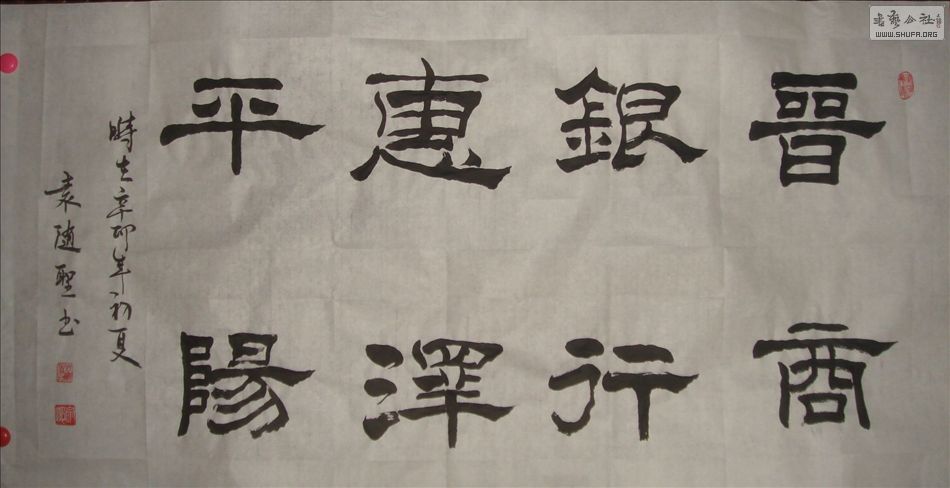 晉商
銀行
惠澤
平陽
時在辛卯年初夏
袁隨聖书
书艺公社
WWW.SHUFA.ORG